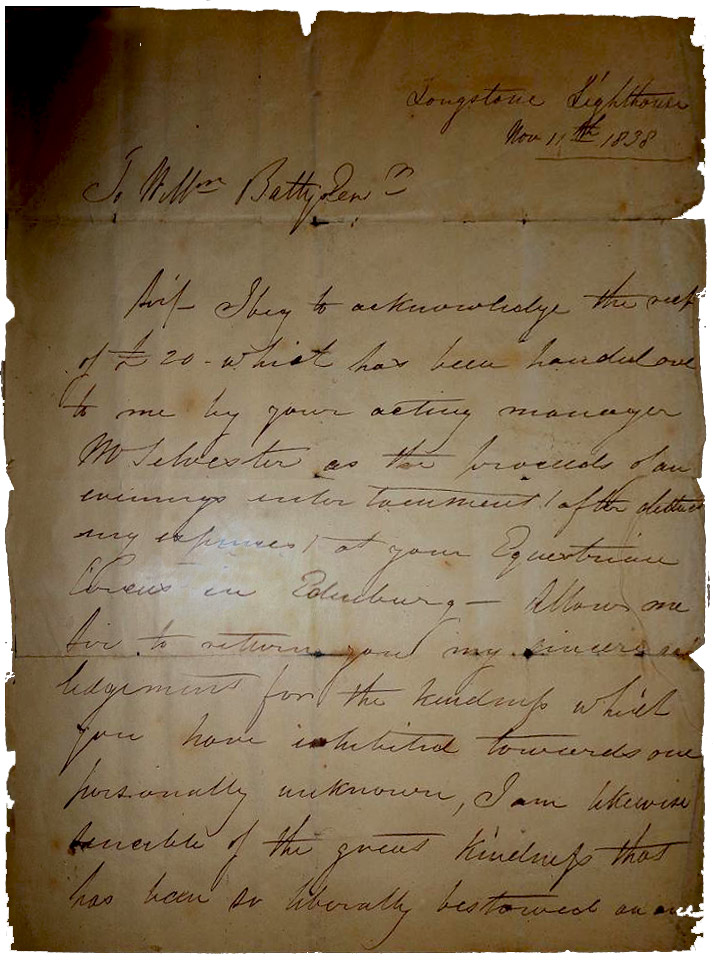 Longstone Lighthouse
Nov 11th 1838
To Willm Batty
Sir/- I beg to acknowledge the
of £20 - which has been handed over
to me by your acting manager
Mr Selvester as the proceeds of an
evenings entertainment (after
my expenses) at your Equestrian
Circus in Edinburg - Allow me
Sir to return you my sincere
ledgement for the kindness which
you have exhibited towards one
personally unknown, I am likewise
sencible of the great kindness that
has been so liberally bestowed on one